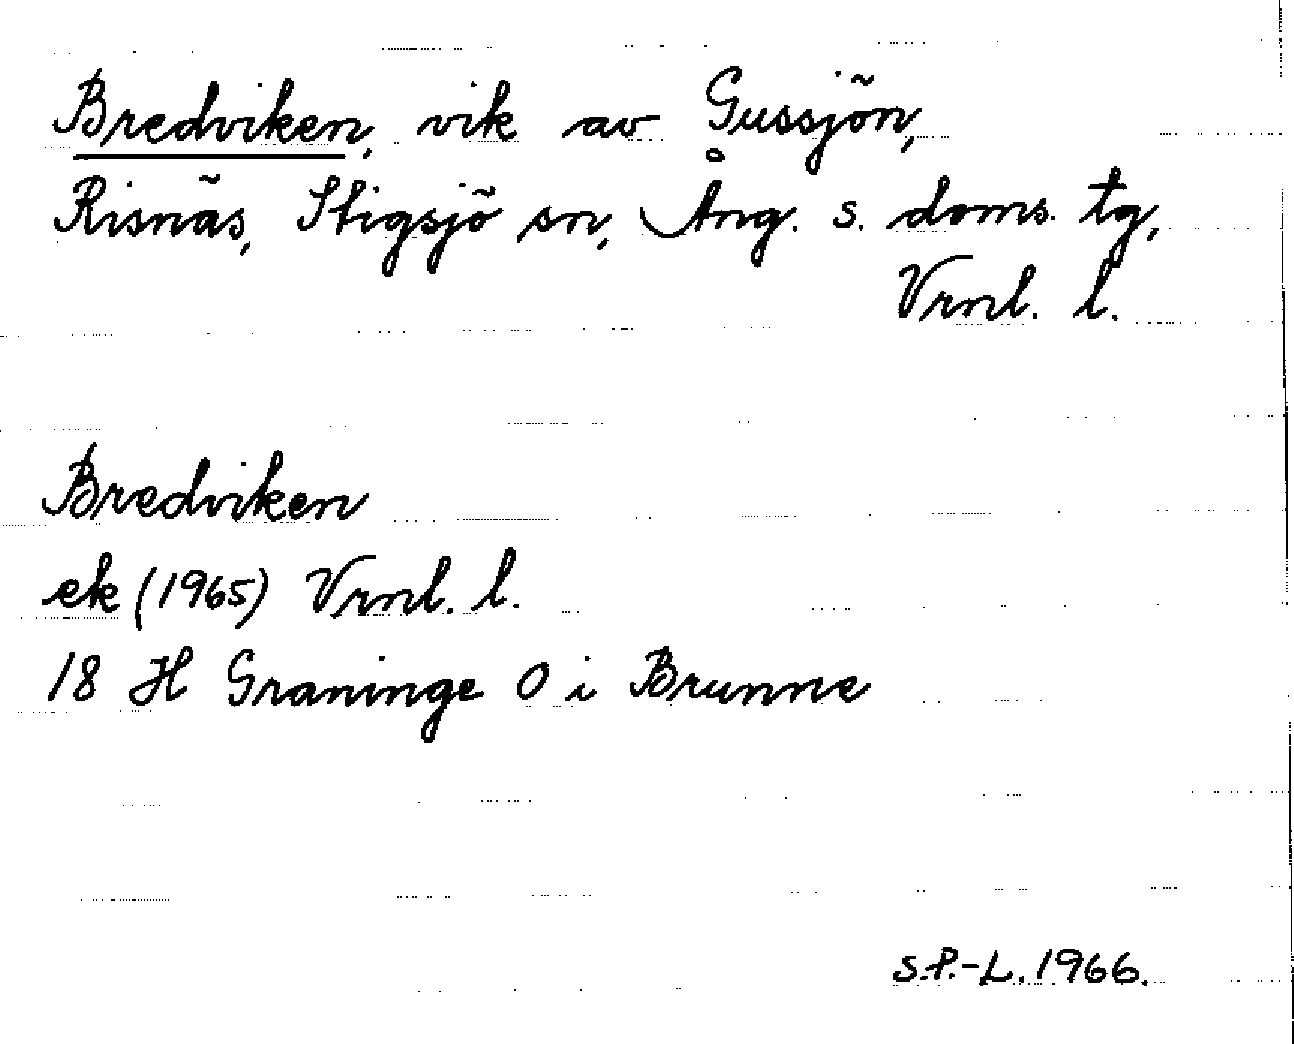 Bredviken, vik av Gussjön,
Risnäs, Stigsjö sn, Ång. s. doms. tg,
Vrnl. l.
Bredviken
ek (1965) Vrnl. l.
18 H Graninge O i Brunne
S.P.-L. 1966.